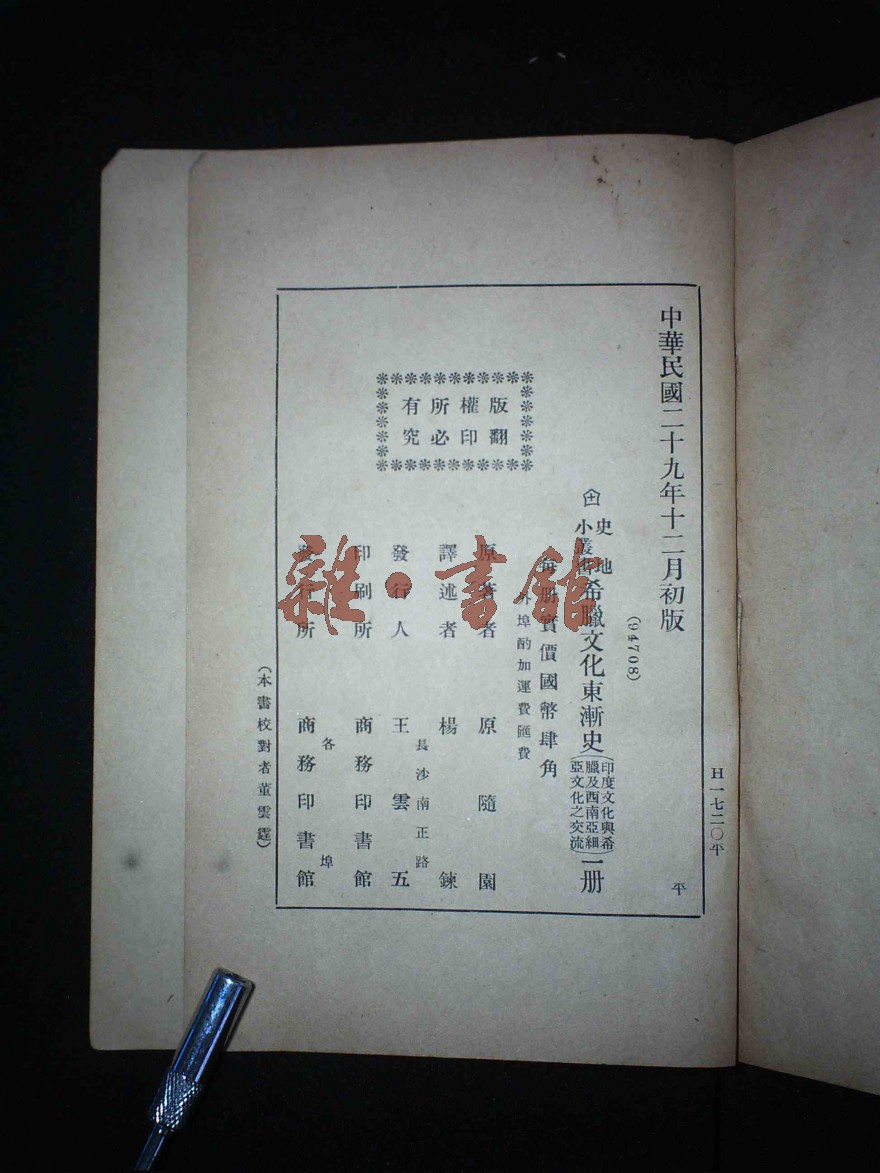 中華民國二十九年十二月初版
(94708)
史地
小叢書
希臘文化東漸史
(印度文化與希
臘及西南亞細
亞文化之交流)
一册
每册實價國幣肆角
外埠酌加運費匯費
原著者 原隨園
譯述者 楊鍊
長沙南正路
發行人 王雲五
印刷所 商務印書館
各埠
發行所 商務印書館
版權所有
翻印必究
(本書校對者董雲霆)
H一七二〇平
平
雜·書館